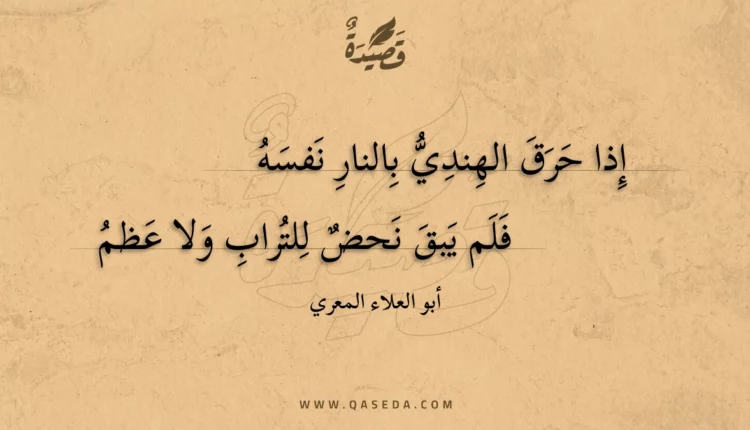 قَصِيدَةٌ
إِذا حَرَقَ الهِندِيُّ بِالنارِ نَفسَهُ
فَلَم يَبقَ نَحضٌ لِلتُرابِ وَلا عَظمُ
أبو العلاء المعري
WWW.QASEDA.COM